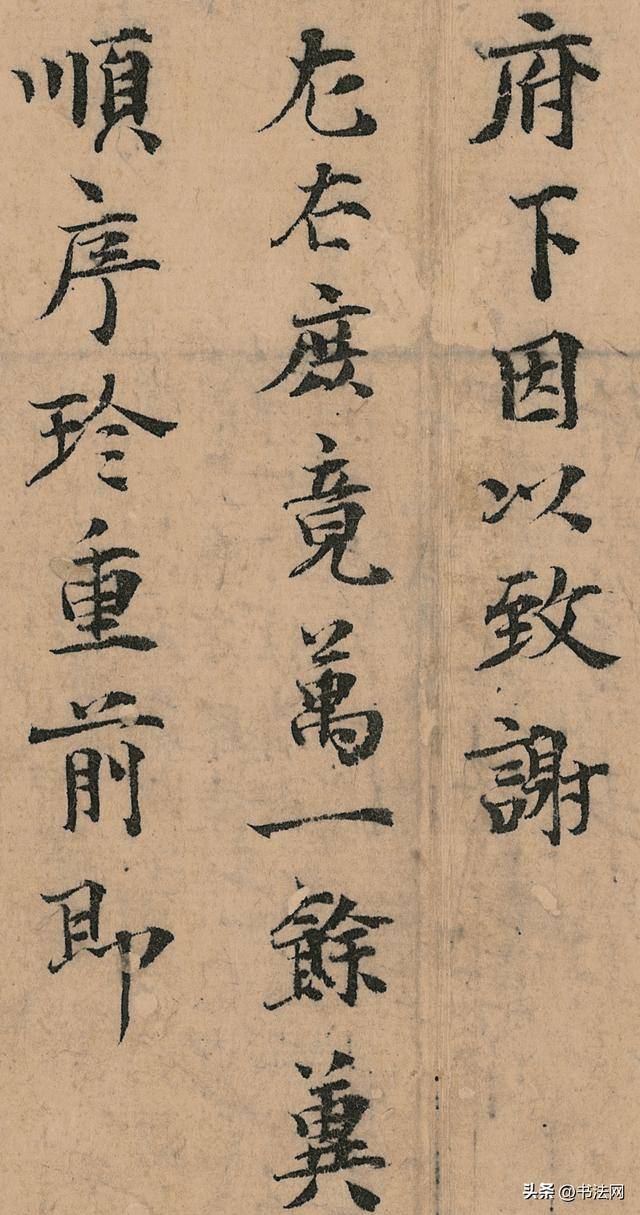 府下因以致謝
左右庶竟萬一餘冀
順序珍重前即
头条 @书法网